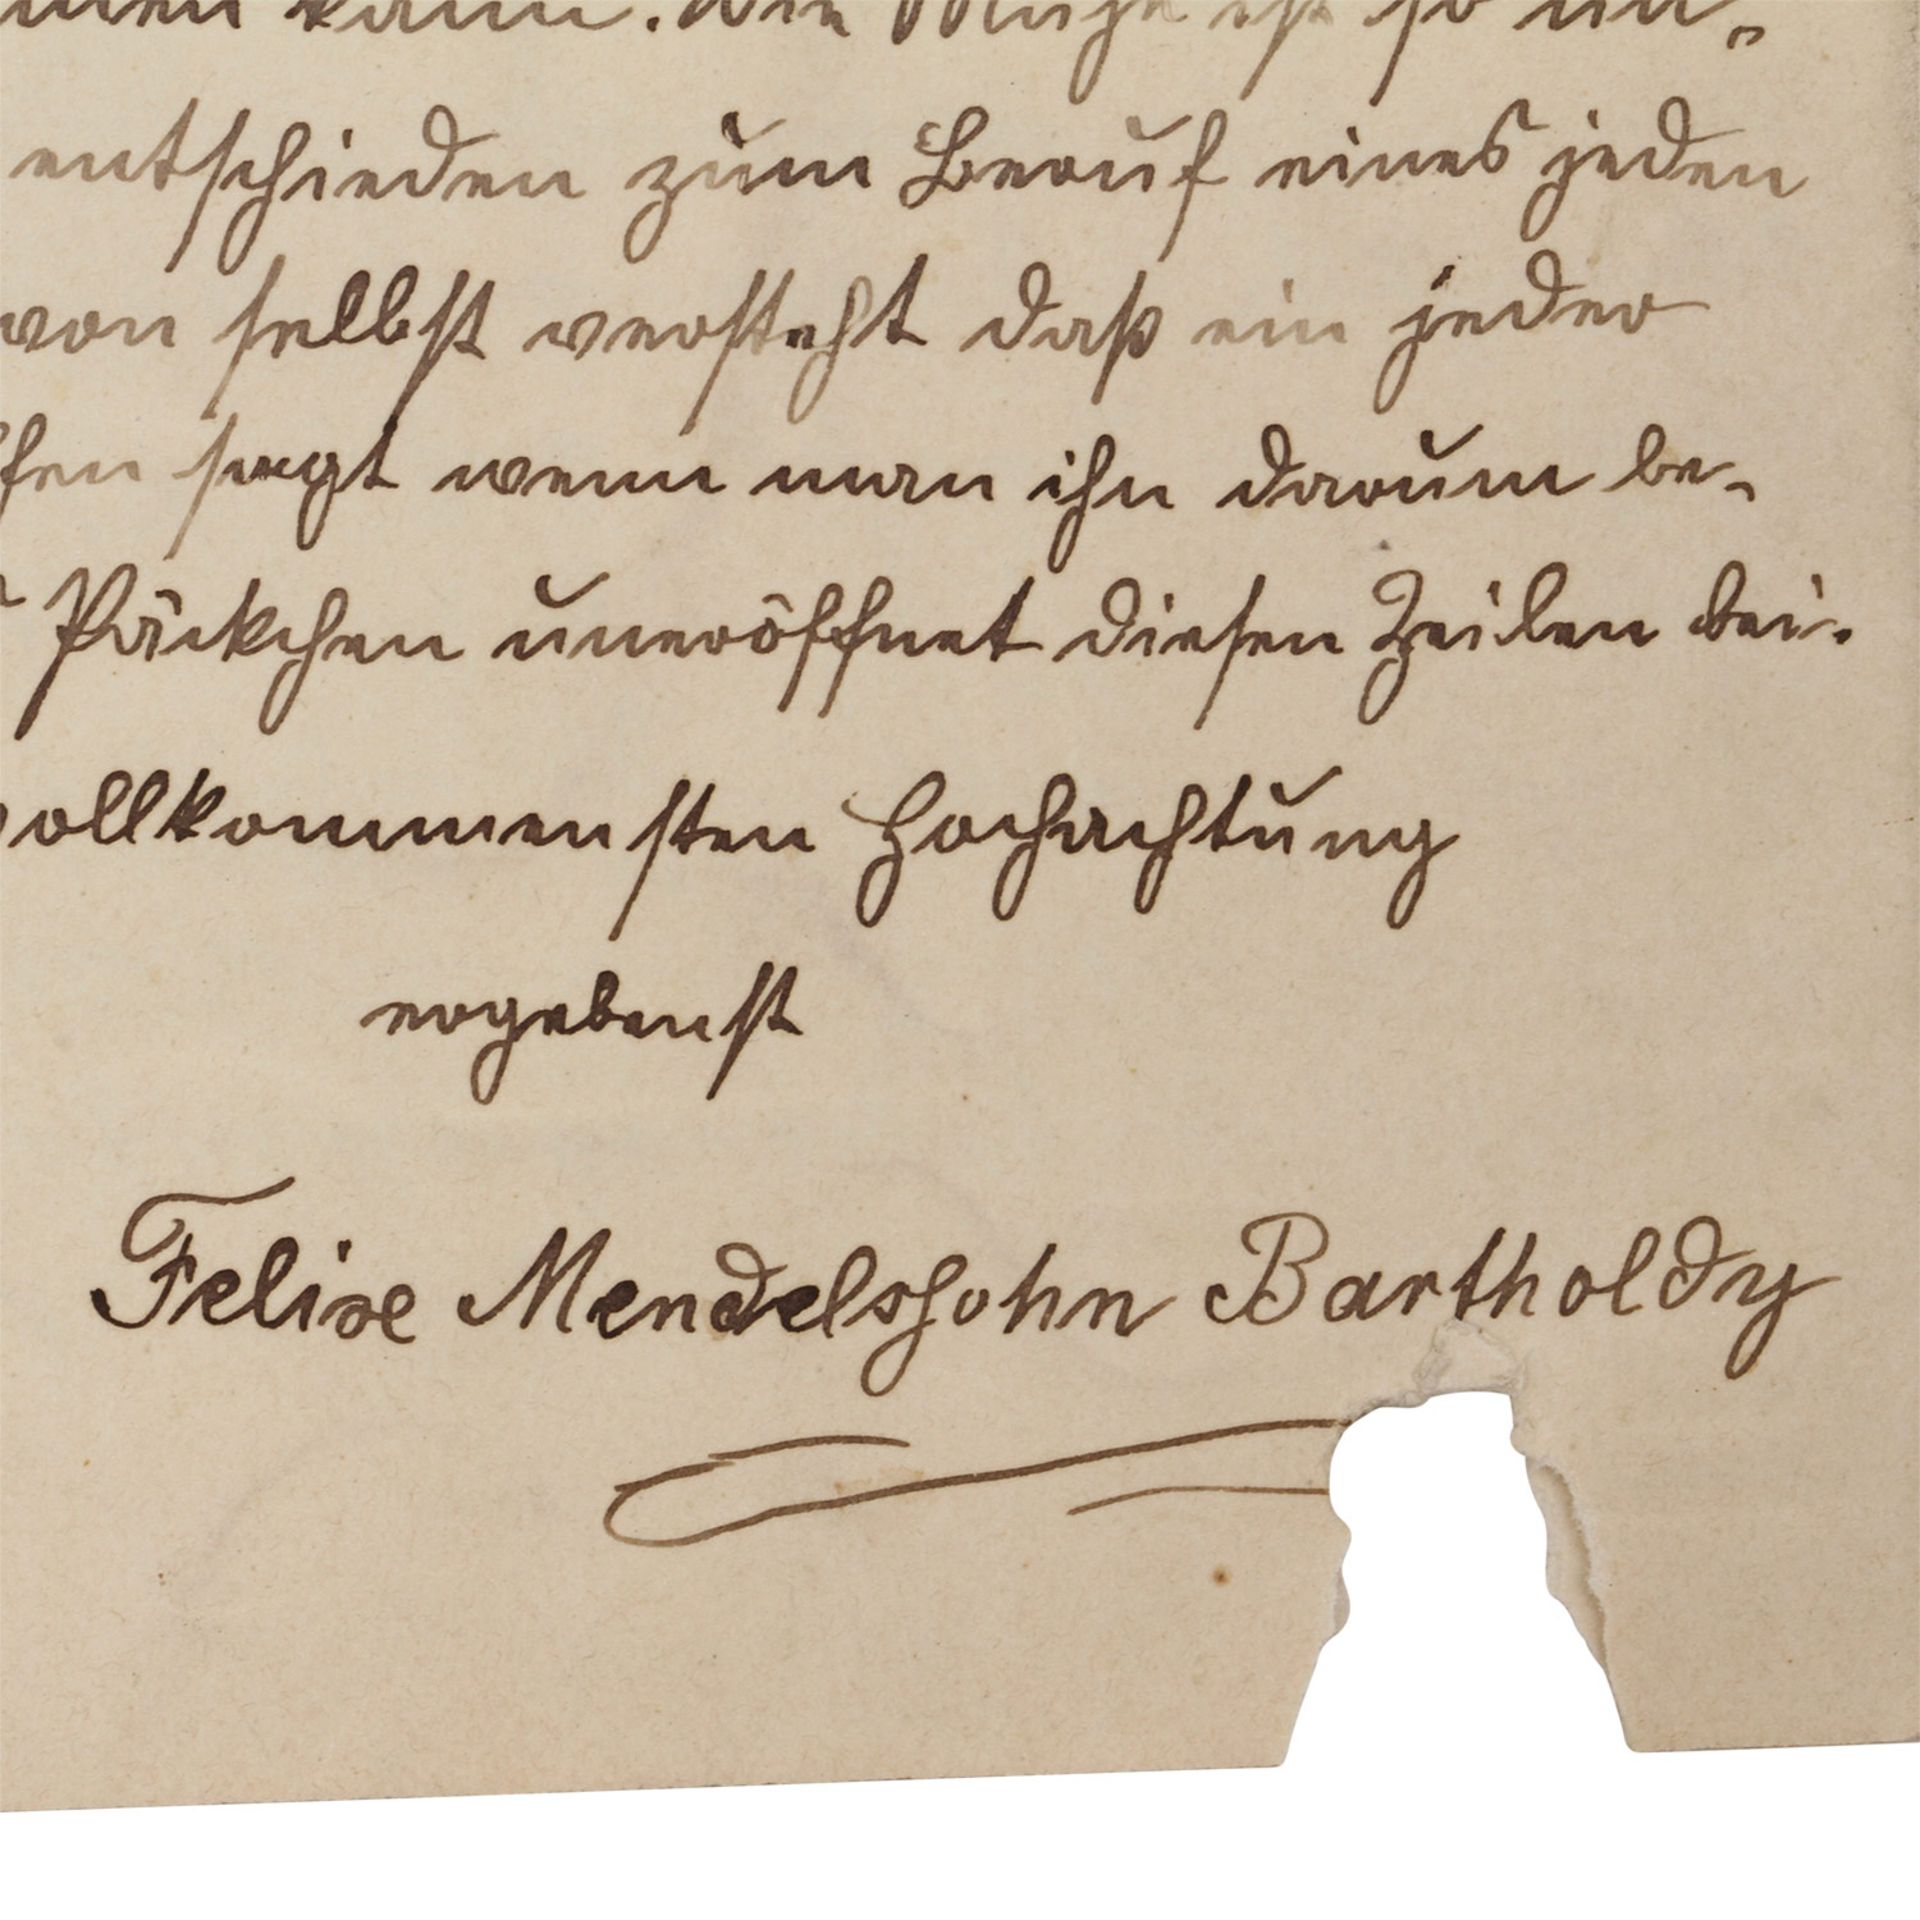 men kann. Die Musik ist so un-
entschieden zum Beruf eines jeden
von selbst versteht daß ein jeder
fen sagt wenn man ihn darum be-
Päckchen uneröffnet diesen Zeilen bei.
vollkommensten Hochachtung
ergebenst
Felix Mendelssohn Bartholdy